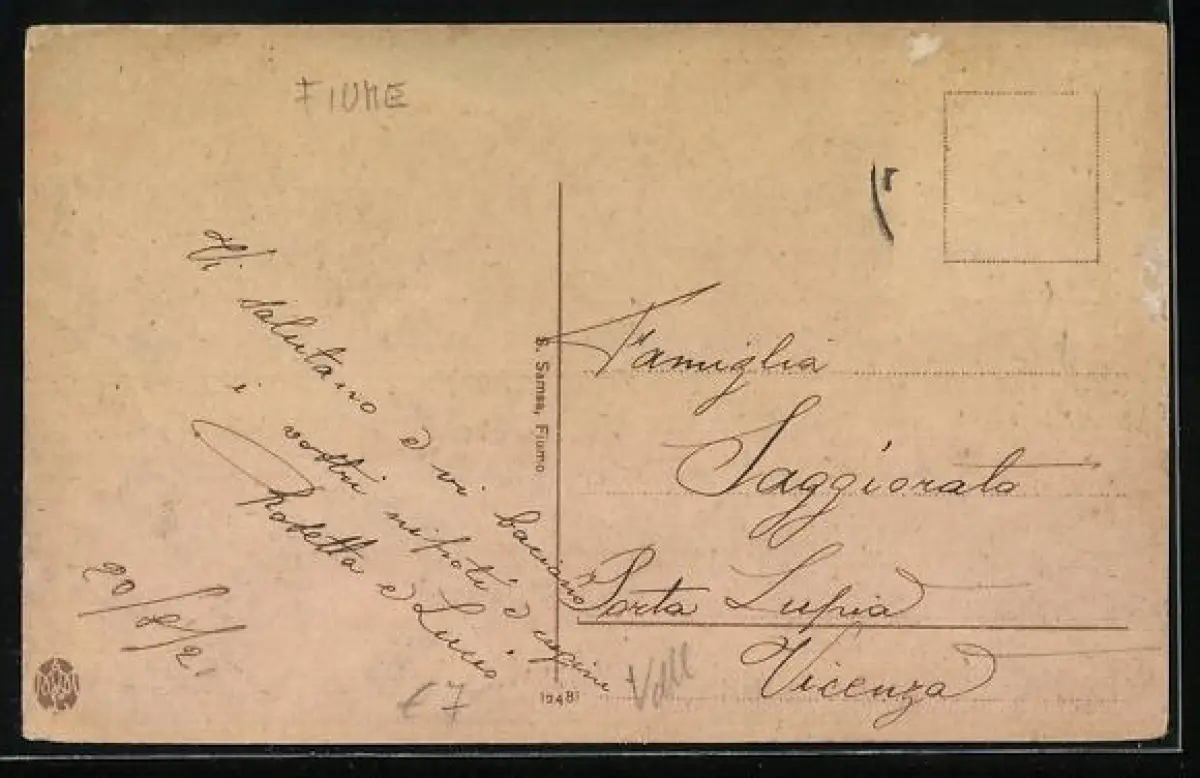 FIUME
Vi salutano e vi baciano
i vostri nipoti e cugini
Rosetta e Lucio
20/8/21
€7
S. Samsa, Fiume
19481
Famiglia
Saggiorato
Porta Lupia
Vicenza